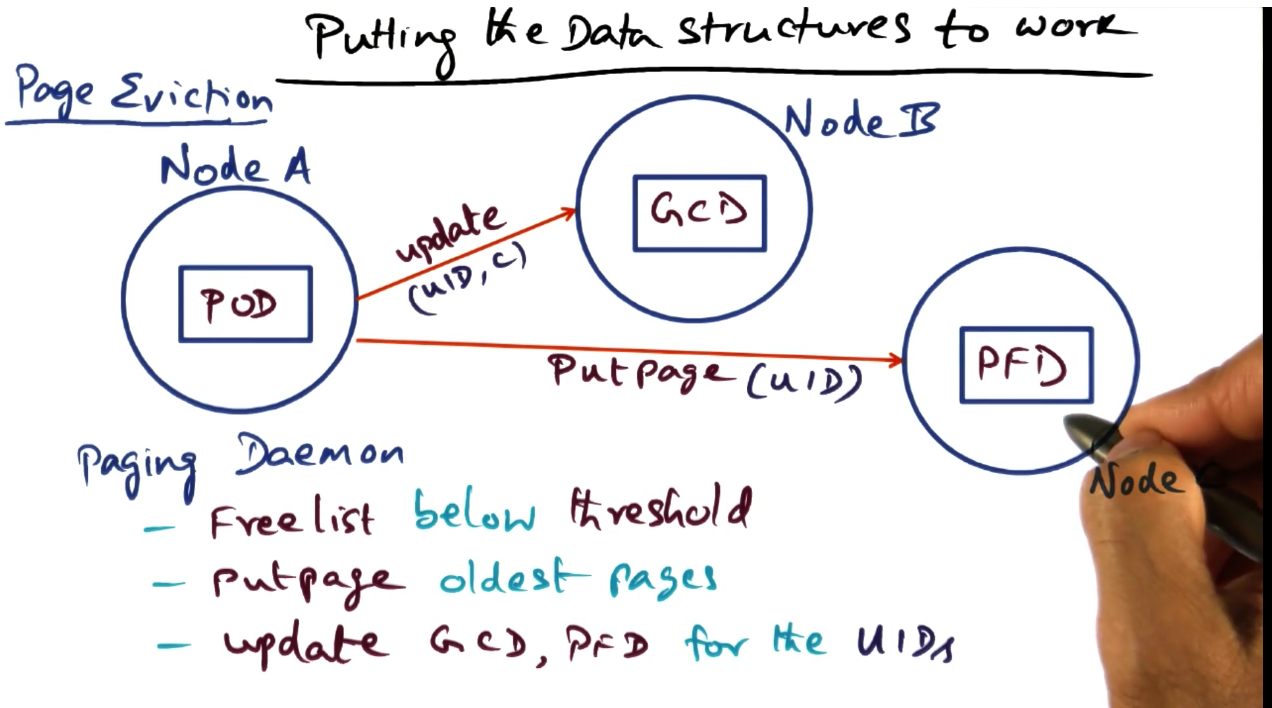 Putting the Data structures to work
Page Eviction
Node A
Node B
POD
GCD
update
(UID, C)
PFD
Putpage (UID)
Node C
Paging Daemon
- Free list below threshold
- putpage oldest pages
- update GCD, PFD for the UIDs